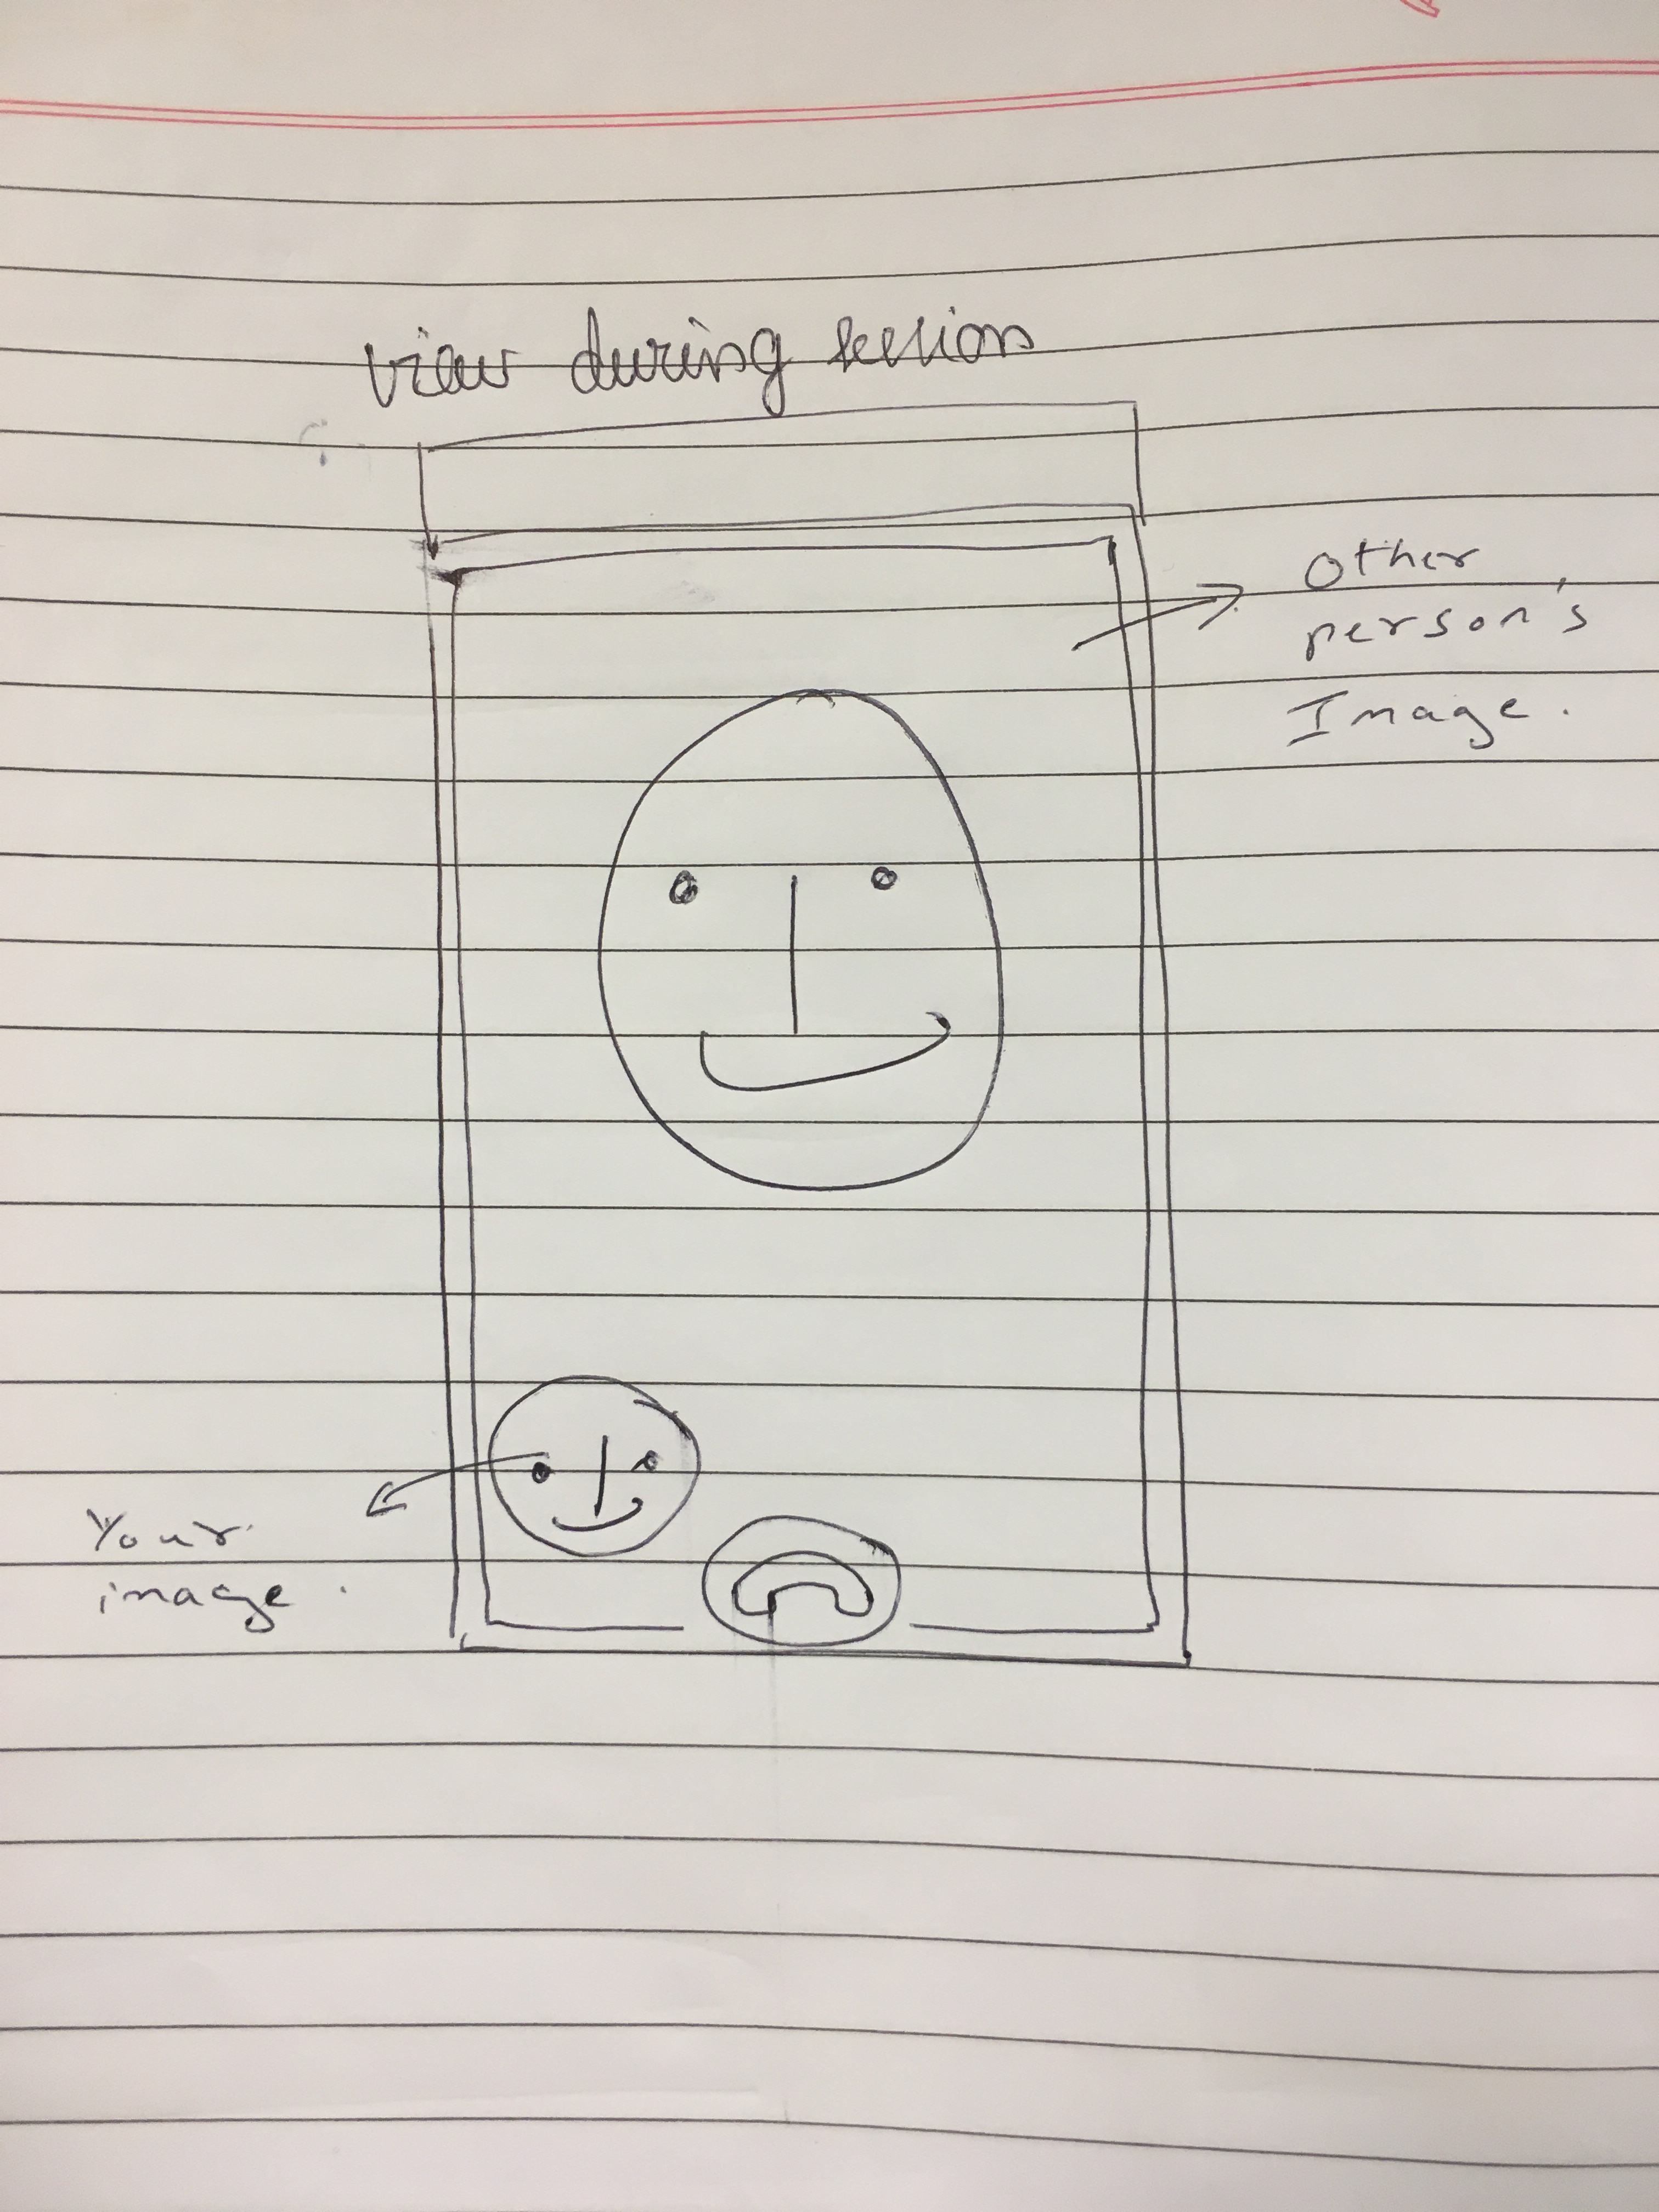 view during session
Other
person's
Image.
Your
image.